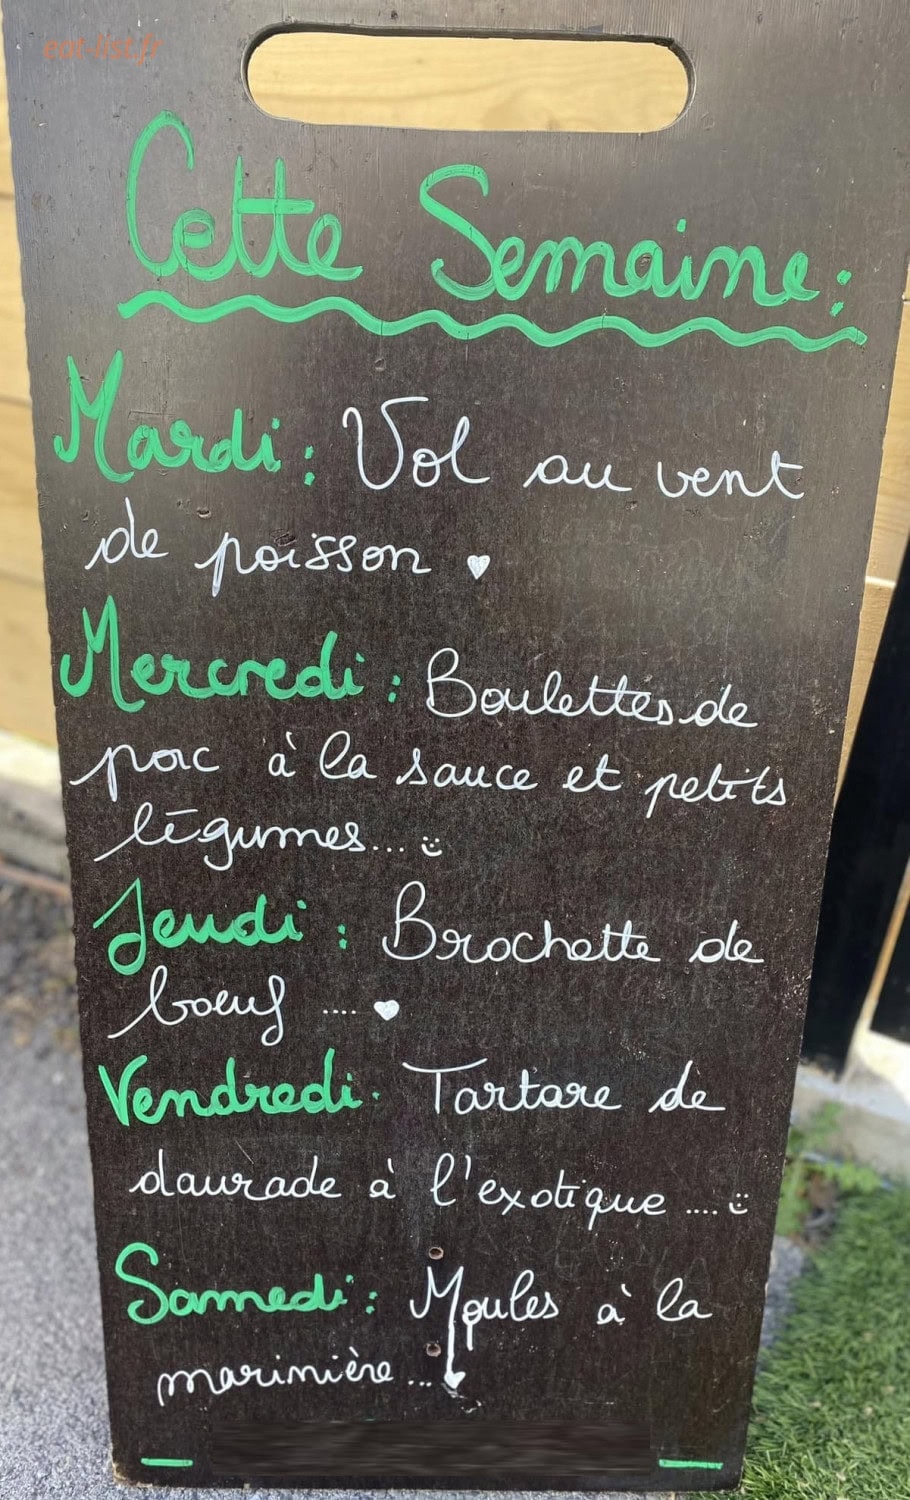 eat-list.fr
Cette Semaine:
Mardi: Vol au vent
de poisson
Mercredi: Boulettes de
porc à la sauce et petits
légumes...
Jeudi: Brochette de
boeuf ....
Vendredi. Tartare de
daurade à l'exotique ....
Samedi: Moules à la
marinière ...